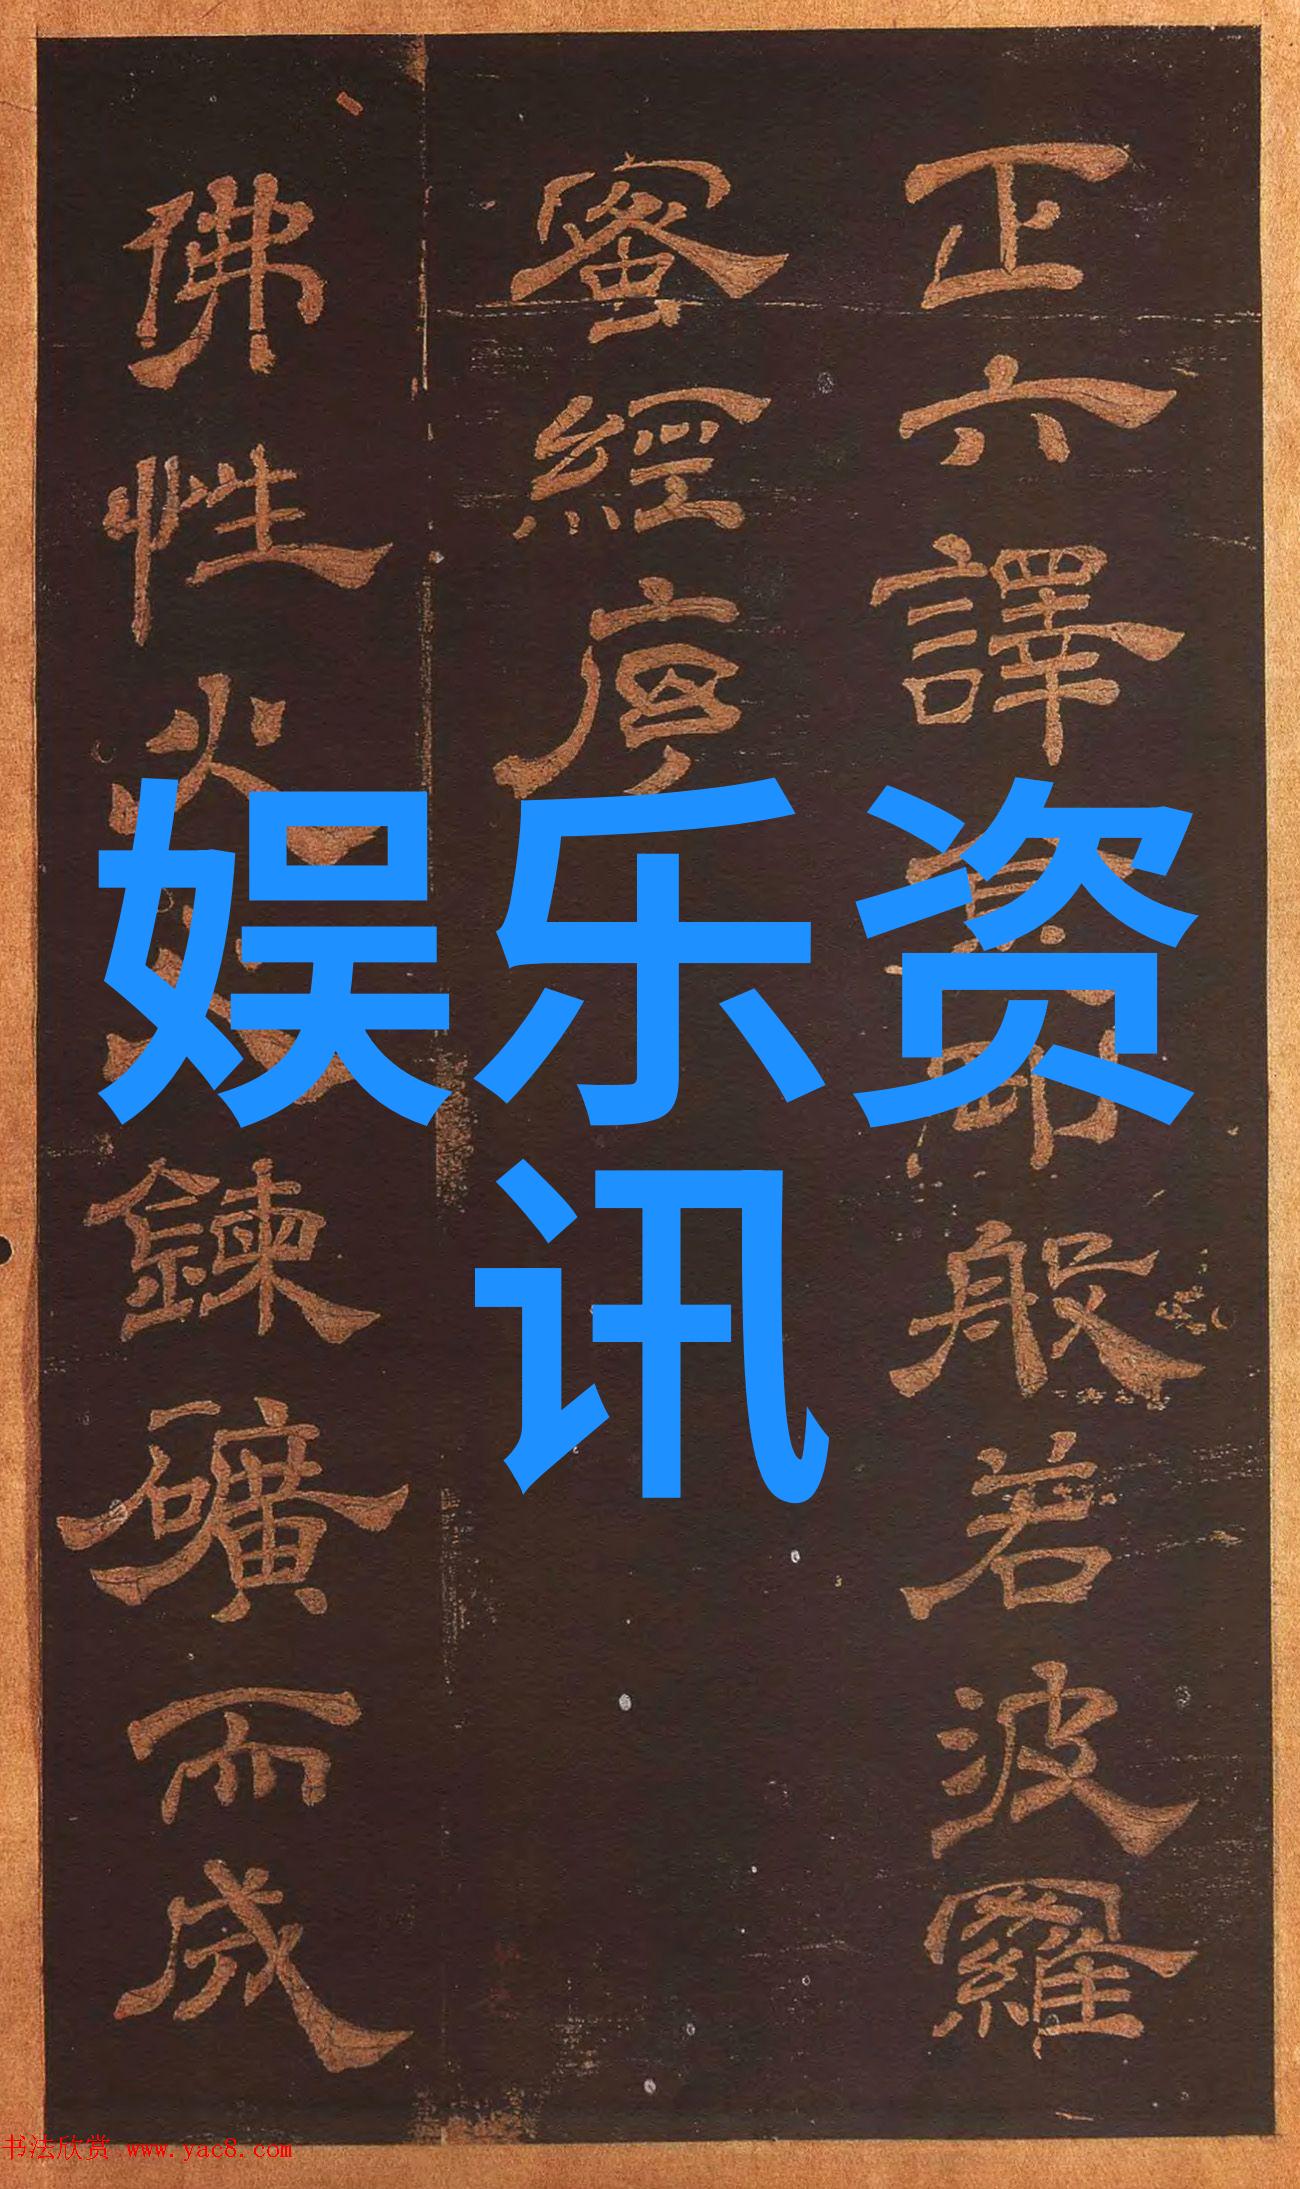 正六譯
般若波羅
蜜經序
佛性火
鍊礦而成
娱乐资
讯
书法欣赏 www.yac8.com